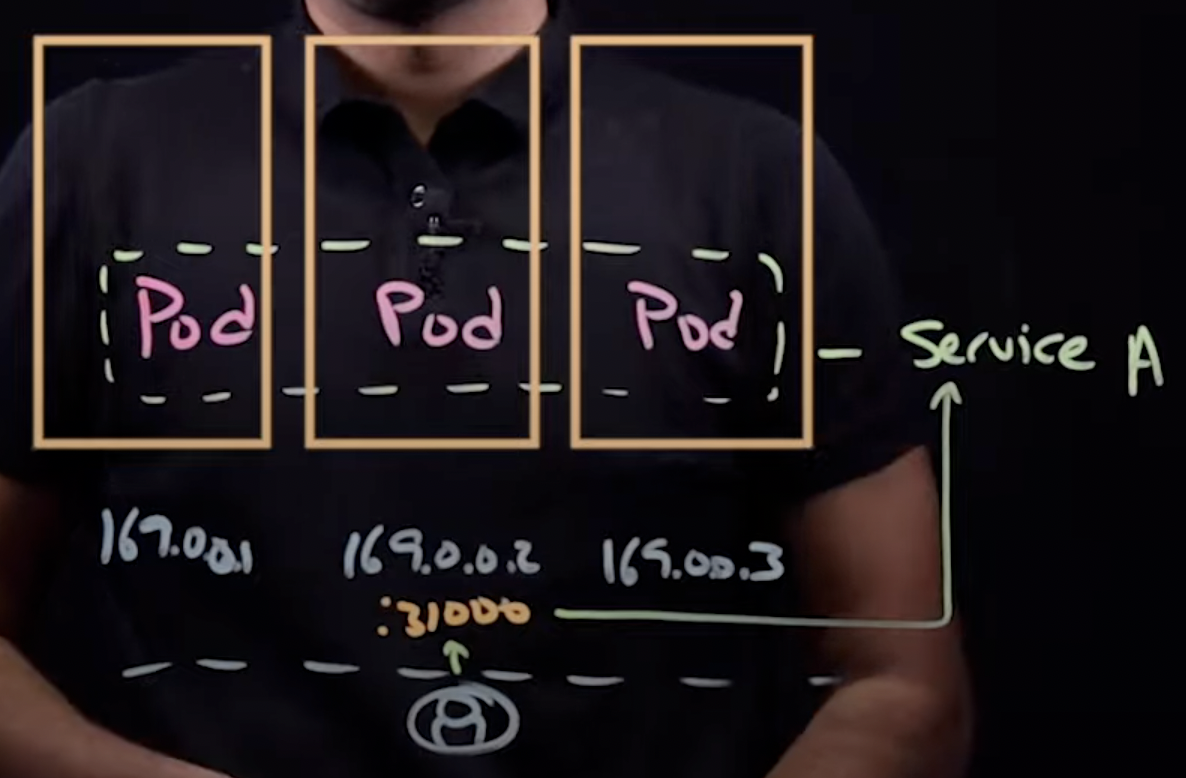 Pod Pod Pod
Service A
169.0.0.1 169.0.0.2 169.0.0.3
:31000